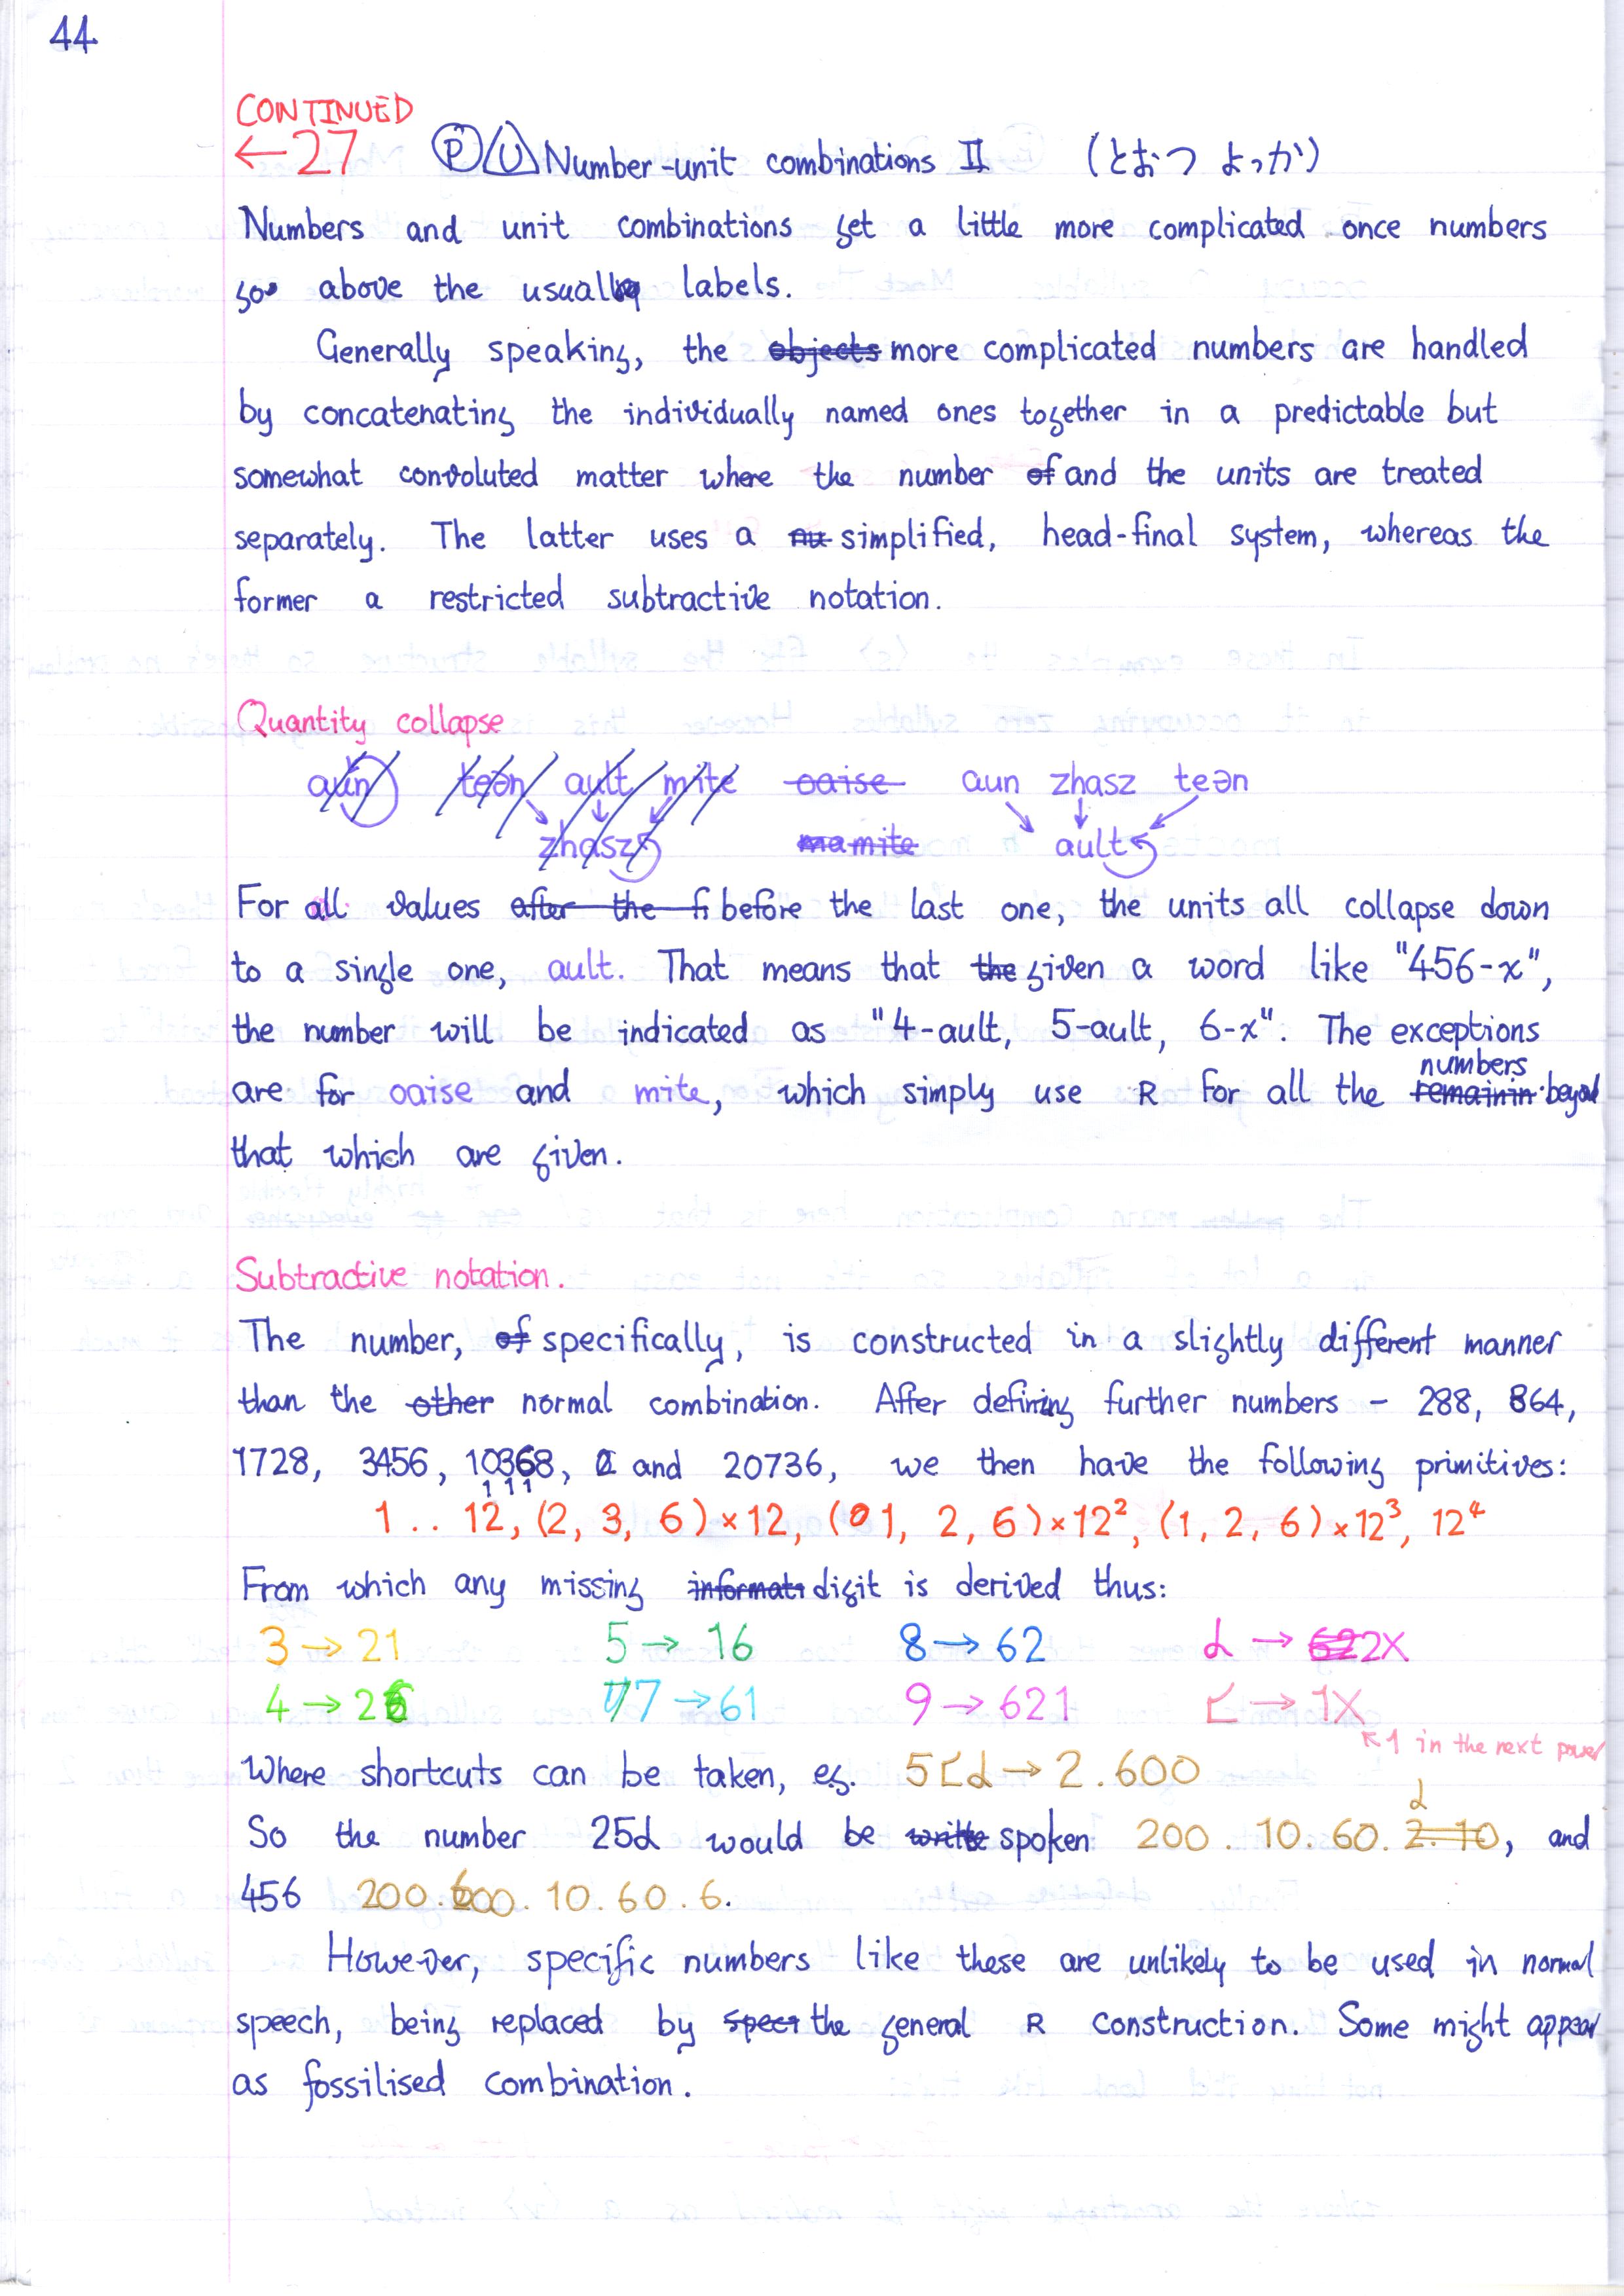 44
CONTINUED
←27 Ⓟ U Number-unit combinations II (とおつ よっか)
Numbers and unit combinations get a little more complicated once numbers
go above the usual labels.
Generally speaking, the objects more complicated numbers are handled
by concatenating the individually named ones together in a predictable but
somewhat convoluted matter where the number of and the units are treated
separately. The latter uses a nu simplified, head-final system, whereas the
former a restricted subtractive notation.
Quantity collapse
aun teən ault mite oaise aun zhasz teən
zhasz mamite ault
For all values after the fi before the last one, the units all collapse down
to a single one, ault. That means that the given a word like "456-x",
the number will be indicated as "4-ault, 5-ault, 6-x". The exceptions
numbers
are for oaise and mite, which simply use R for all the remainin beyond
that which are given.
Subtractive notation.
The number, of specifically, is constructed in a slightly different manner
than the other normal combination. After defining further numbers – 288, 864,
1728, 3456, 10368, and 20736, we then have the following primitives:
1 .. 12, (2, 3, 6)×12, (1, 2, 6)×12², (1, 2, 6)×12³, 12⁴
From which any missing informati digit is derived thus:
3 → 21 5 → 16 8 → 62 d → 2X
4 → 26 7 → 61 9 → 621 ↸ → 1X
↖1 in the next power
Where shortcuts can be taken, eg. 5↸d → 2.600
d
So the number 25d would be writte spoken 200 . 10. 60. 2.10, and
456 200.600.10.60.6.
However, specific numbers like these are unlikely to be used in normal
speech, being replaced by spect the general R construction. Some might appear
as fossilised combination.